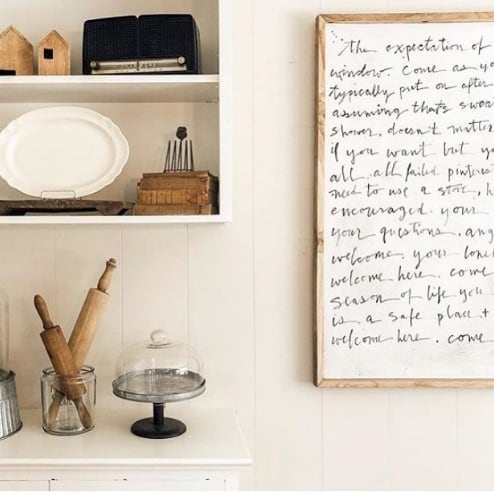 the expectation of
window. come as
typically put on after
assuming that's
shower, doesn't matter
if you want but
all. all failed pinterest
need to use a
encouraged. your
your questions.
welcome. your
welcome here. come
season of life you
is a safe place
welcome here. come